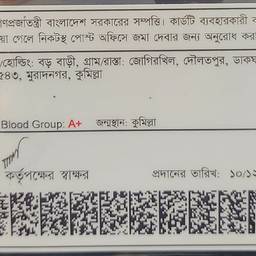 গণপ্রজাতন্ত্রী বাংলাদেশ সরকারের সম্পত্তি। কার্ডটি ব্যবহারকারী
গেলে নিকটস্থ পোস্ট অফিসে জমা দেবার জন্য অনুরোধ
/হোল্ডিং: বড় বাড়ী, গ্রাম/রাস্তা: জোগিরখিল, দৌলতপুর, ডাকঘ
৫৪৩, মুরাদনগর, কুমিল্লা
Blood Group: A+ জন্মস্থান: কুমিল্লা
কর্তৃপক্ষের স্বাক্ষর প্রদানের তারিখ: ১০/১২